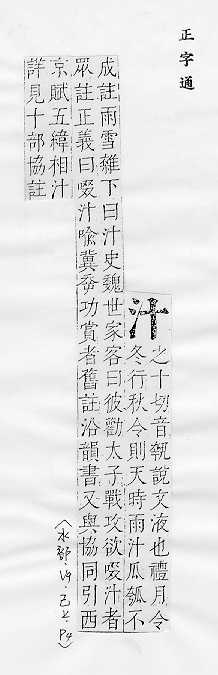 正字通
汁
之十切音執說文液也禮月令
冬行秋令則天時雨汁瓜瓠不
成註雨雪雜下曰汁史魏世家客曰彼勸太子戰攻欲啜汁者
眾註正義曰啜汁喩冀叅功賞者舊註沿韻書又與協同引西
京賦五緯相汁
詳見十部協註
〈水部 巳上 P4〉